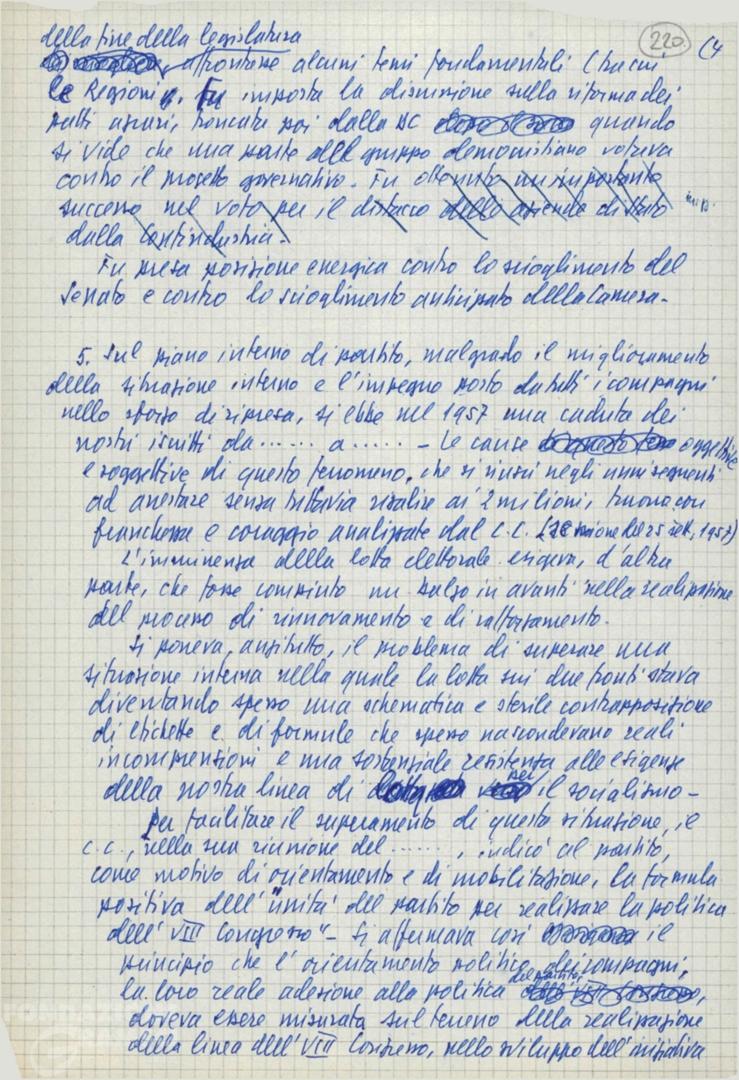 220.
della fine della legislatura
affrontasse alcuni temi fondamentali (tra cui,
le Regioni). Fu imposta la discussione sulla riforma dei
patti agrari, troncata poi dalla DC quando
si vide che una parte del gruppo democristiano votava
contro il progetto governativo. Fu ottenuto un importante
successo nel voto per il distacco delle aziende di Stato
dalla Confindustria.
Fu presa posizione energica contro lo scioglimento del
Senato e contro lo scioglimento anticipato della Camera.
5. Sul piano interno di partito, malgrado il miglioramento
della situazione interna e l'impegno posto da tutti i compagni
nello sforzo di ripresa, si ebbe nel 1957 una caduta dei
nostri iscritti da ...... a ..... - Le cause oggettive
e soggettive di questo fenomeno, che si riuscì negli anni seguenti
ad arrestare senza tuttavia risalire ai 2 milioni, furono con
franchezza e coraggio analizzate dal C.C. (sessione del 25 sett. 1957)
L'imminenza della lotta elettorale esigeva, d'altra
parte, che fosse compiuto un balzo in avanti nella realizzazione
del processo di rinnovamento e di rafforzamento.
Si poneva, anzitutto, il problema di superare una
situazione interna nella quale la lotta sui due fronti stava
diventando spesso una schematica e sterile contrapposizione
di etichette e di formule che spesso nascondevano reali
incomprensioni e una sostanziale resistenza alle esigenze
della nostra linea di per il socialismo -
Per facilitare il superamento di questa situazione, il
C.C., nella sua riunione del ......, indicò al partito,
come motivo di orientamento e di mobilitazione, la formula
positiva dell'"unità del partito per realizzare la politica
dell'VIII Congresso" - Si affermava così il
principio che l'orientamento politico dei compagni,
la loro reale adesione alla politica del partito,
doveva essere misurata sul terreno della realizzazione
della linea dell'VIII Congresso, nello sviluppo dell'iniziativa